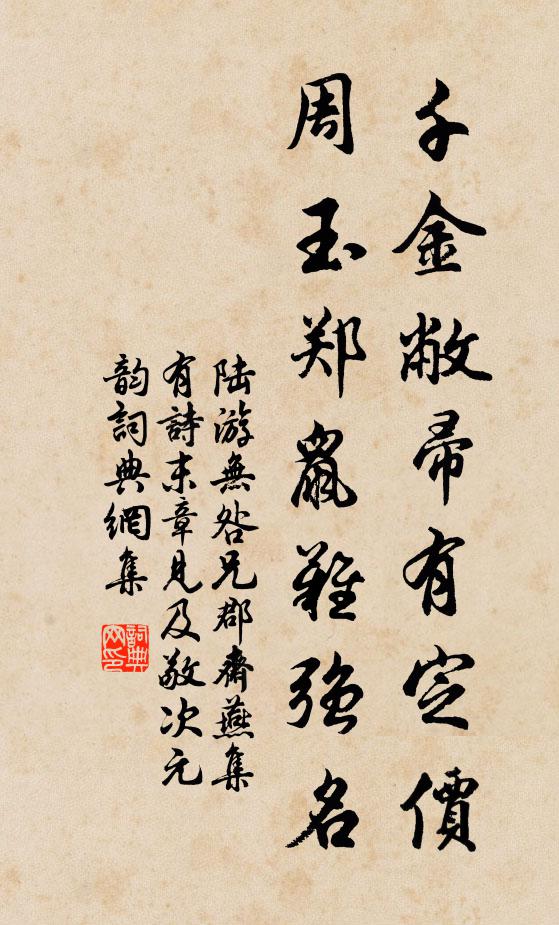 千金敝帚有定價
周玉郑鼠難強名
陆游無咎兄郡齋燕集
有詩末章見及敬次元
韵詞典網集
詞典网印